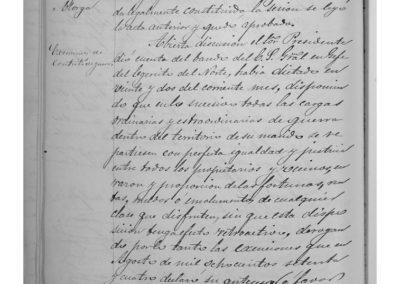 Alorza
da legalmente constituida la sesion se leyó
la acta anterior y quedó aprobada.
Abierta discusion el Sor. Presidente
Exenciones de
Contribuciones
dió cuenta del bando del E. S. Gral en Gefe
del Egercito del Norte, habia dictado en
veinte y dos del corriente mes, disponien
do que en lo sucesivo todas las cargas
ordinarias y estraordinarias de guerra
dentro del territorio de su mando se re
partiesen con perfecta igualdad y justicia
entre todos los propietarios y vecinos, en
razon y proporcion de las fortunas, ren
tas, sueldos ó emolumentos de cualquier
clase que disfruten, sin que esta dispo
sicion tenga efecto retroactivo, derogan
do por lo tanto las exenciones que en
Agosto de mil ochocientos setenta
y cuatro declaró su antecesor á favor